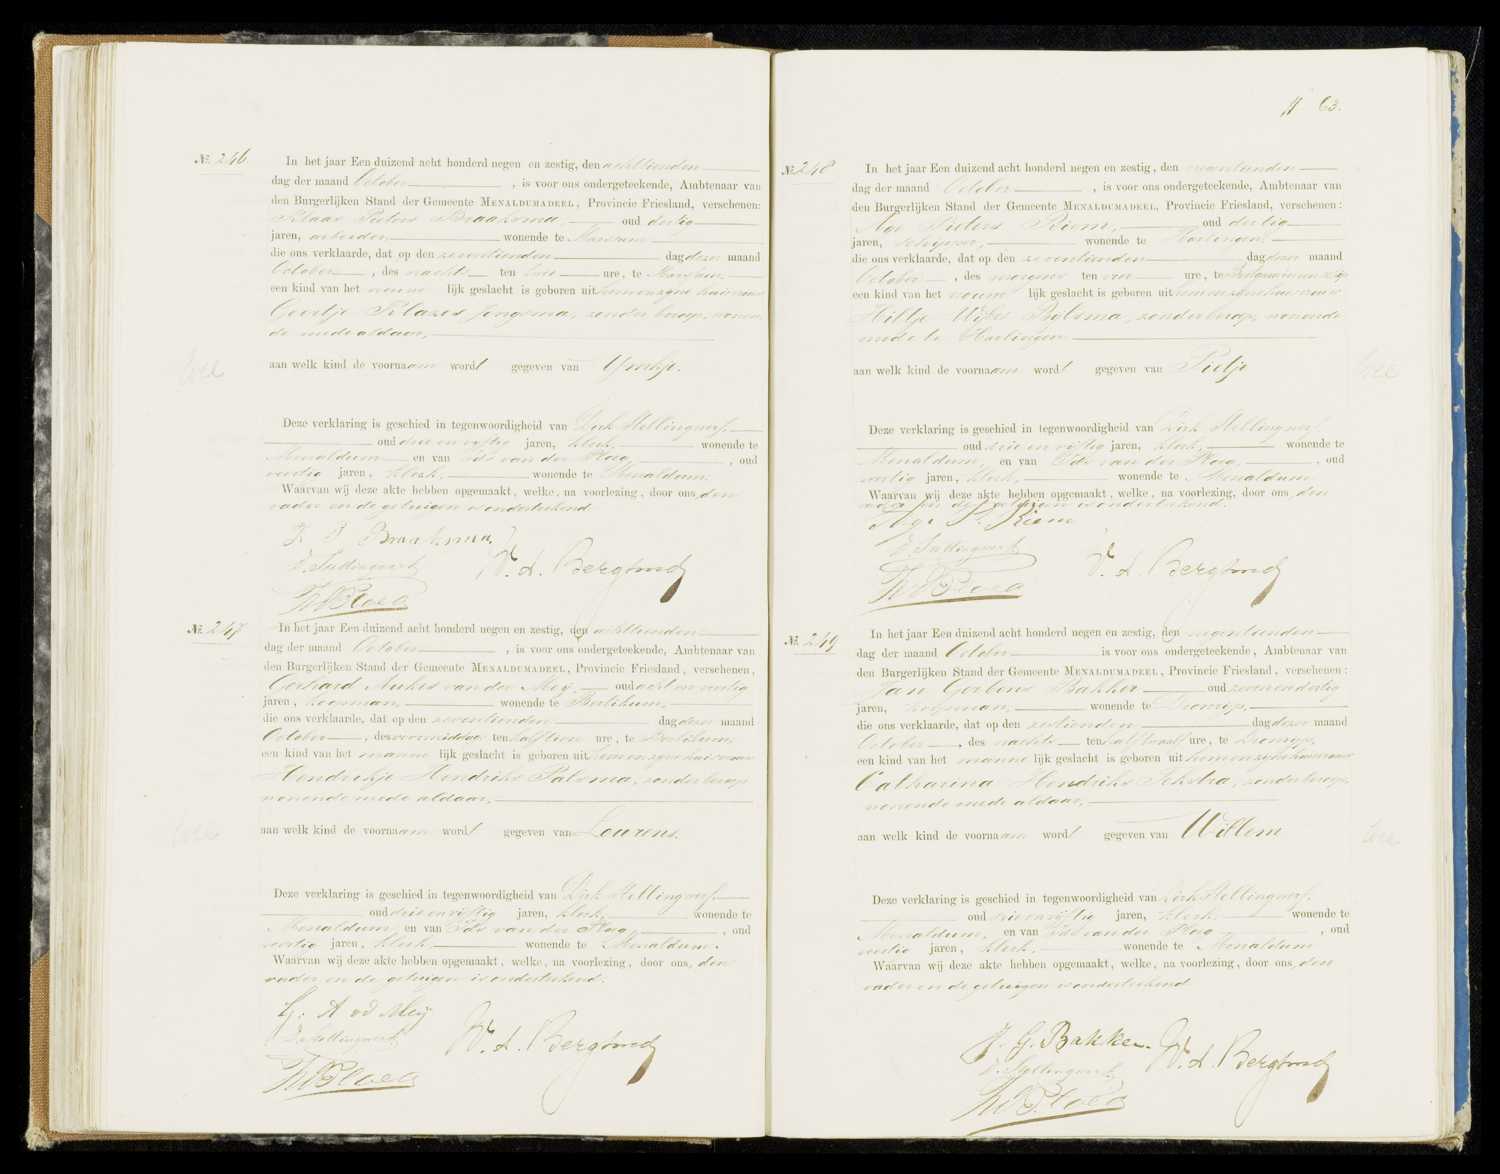 № 246
In het jaar Een duizend acht honderd negen en zestig, den achttienden
dag der maand October, is voor ons ondergeteekende, Ambtenaar van
den Burgerlijken Stand der Gemeente MENALDUMADEEL, Provincie Friesland, verschenen:
Klaas Pieters Braaksma, oud dertig
jaren, arbeider, wonende te Marssum
die ons verklaarde, dat op den zeventienden dag dezer maand
October, des nachts ten twee ure, te Marssum,
een kind van het vrouwe lijk geslacht is geboren uit hem en zijne huisvrouw
Geertje Klazes Jongsma, zonder beroep, wonen-
de mede aldaar,
aan welk kind de voornaam wordt gegeven van Ymkje.
Deze verklaring is geschied in tegenwoordigheid van Dirk Stellingwerf,
oud drie en vijftig jaren, klerk, wonende te
Menaldum en van Ids van der Ploeg, oud
veertig jaren, klerk, wonende te Menaldum.
Waarvan wij deze akte hebben opgemaakt, welke, na voorlezing, door ons, den
vader en de getuigen is onderteekend.
K. P. Braaksma
D. Stellingwerf
W. A. Bergsma
IvdPloeg
№ 247
In het jaar Een duizend acht honderd negen en zestig, den achttienden
dag der maand October, is voor ons ondergeteekende, Ambtenaar van
den Burgerlijken Stand der Gemeente MENALDUMADEEL, Provincie Friesland, verschenen,
Gerhard Aukes van der Meij, oud acht en veertig
jaren, koopman, wonende te Berlikum,
die ons verklaarde, dat op den zeventienden dag dezer maand
October, des voormiddags ten half tien ure, te Berlikum,
een kind van het manne lijk geslacht is geboren uit hem en zijne huisvrouw
Hendrikje Hendriks Palsma, zonder beroep
wonende mede aldaar,
aan welk kind de voornaam wordt gegeven van Lourens.
Deze verklaring is geschied in tegenwoordigheid van Dirk Stellingwerf,
oud drie en vijftig jaren, klerk, wonende te
Menaldum, en van Ids van der Ploeg, oud
veertig jaren, klerk, wonende te Menaldum.
Waarvan wij deze akte hebben opgemaakt, welke, na voorlezing, door ons, den
vader en de getuigen is onderteekend.
G. A vd Meij
D. Stellingwerf
W. A. Bergsma
IvdPloeg
63.
№ 248
In het jaar Een duizend acht honderd negen en zestig, den negentienden
dag der maand October, is voor ons ondergeteekende, Ambtenaar van
den Burgerlijken Stand der Gemeente MENALDUMADEEL, Provincie Friesland, verschenen:
Age Pieters Riem, oud dertig
jaren, schipper, wonende te Harlingen,
die ons verklaarde, dat op den zeventienden dag dezer maand
October, des morgens ten vier ure, te
een kind van het vrouwe lijk geslacht is geboren uit hem en zijne huisvrouw
Hiltje Wijbes Bijlsma, zonder beroep, wonende
mede te Harlingen
aan welk kind de voornaam wordt gegeven van Pietje
Deze verklaring is geschied in tegenwoordigheid van Dirk Stellingwerf,
oud drie en vijftig jaren, klerk, wonende te
Menaldum, en van Ids van der Ploeg, oud
veertig jaren, klerk, wonende te Menaldum
Waarvan wij deze akte hebben opgemaakt, welke, na voorlezing, door ons, den
vader en de getuigen is onderteekend.
Age P. Riem
D. Stellingwerf
W. A. Bergsma
IvdPloeg
№ 249
In het jaar Een duizend acht honderd negen en zestig, den negentienden
dag der maand October is voor ons ondergeteekende, Ambtenaar van
den Burgerlijken Stand der Gemeente MENALDUMADEEL, Provincie Friesland, verschenen:
Jan Gerbens Bakker oud zeven en dertig
jaren, koopman, wonende te Dronrijp,
die ons verklaarde, dat op den zestienden dag dezer maand
October, des nachts ten half twaalf ure, te Dronrijp,
een kind van het manne lijk geslacht is geboren uit hem en zijne huisvrouw
Catharina Hendriks Sikstra, zonder beroep,
wonende mede aldaar,
aan welk kind de voornaam wordt gegeven van Willem
Deze verklaring is geschied in tegenwoordigheid van Dirk Stellingwerf,
oud drie en vijftig jaren, klerk, wonende te
Menaldum, en van Ids van der Ploeg, oud
veertig jaren, klerk, wonende te Menaldum
Waarvan wij deze akte hebben opgemaakt, welke, na voorlezing, door ons, den
vader en de getuigen is onderteekend
J. G. Bakker
D. Stellingwerf
W. A. Bergsma
IvdPloeg